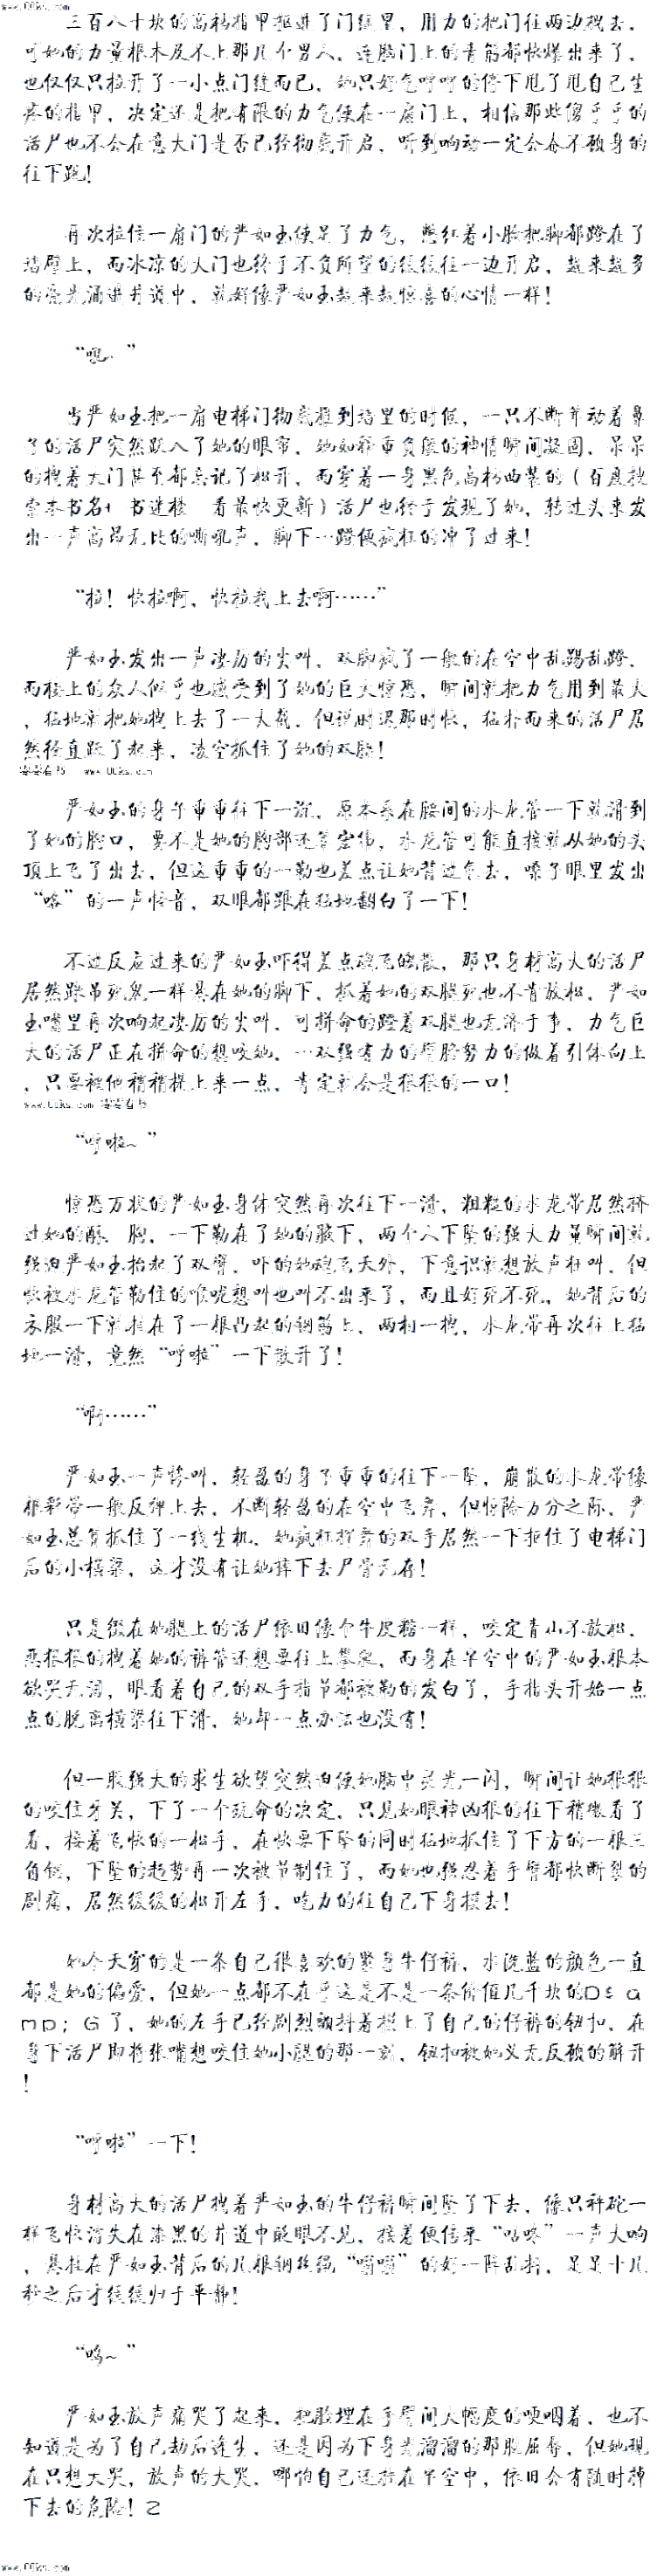 www.00ks.com
三百八十块的高档指甲抠进了门缝里，用力的把门往两边拽去，
可她的力量根本及不上那几个男人，连脑门上的青筋都快爆出来了，
也仅仅只拉开了一小点门缝而已，她只好气呼呼的停下甩了甩自己生
疼的指甲，决定还是把有限的力气使在一扇门上，相信那些傻乎乎的
活尸也不会在意大门是否已经彻底开启，听到响动一定会奋不顾身的
往下跳！
再次拉住一扇门的严如玉使足了力气，憋红着小脸把脚都蹬在了
墙壁上，而冰凉的大门也终于不负所望的缓缓往一边开启，越来越多
的亮光涌进井道中，就好像严如玉越来越惊喜的心情一样！
“嗯~”
当严如玉把一扇电梯门彻底推到墙里的时候，一只不断耸动着鼻
子的活尸突然跃入了她的眼帘，她如释重负般的神情瞬间凝固，呆呆
的拽着大门甚至都忘记了松开，而穿着一身黑色高档西装的（百度搜
索本书名+ 书迷楼 看最快更新）活尸也终于发现了她，转过头来发
出一声高昂无比的嘶吼声，脚下一蹬便疯狂的冲了过来！
“拉！快拉啊，快拉我上去啊……”
严如玉发出一声凄厉的尖叫，双脚疯了一般的在空中乱踢乱蹬，
而楼上的众人似乎也感受到了她的巨大惊恐，瞬间就把力气用到最大
，猛地就把她拽上去了一大截，但说时迟那时快，猛扑而来的活尸居
然径直跃了起来，凌空抓住了她的双腿！
www.00ks.com
严如玉的身子重重往下一沉，原本系在腰间的水龙管一下就滑到
了她的胸口，要不是她的胸部还算宏伟，水龙管可能直接就从她的头
顶上飞了出去，但这重重的一勒也差点让她背过气去，嗓子眼里发出
“咯”的一声怪音，双眼都跟在猛地翻白了一下！
不过反应过来的严如玉吓得差点魂飞魄散，那只身材高大的活尸
居然跟吊死鬼一样悬在她的脚下，抓着她的双腿死也不肯放松，严如
玉嘴里再次响起凄厉的尖叫，可拼命的蹬着双腿也无济于事，力气巨
大的活尸正在拼命的想咬她，一双强有力的臂膀努力的做着引体向上
，只要被他稍稍提上来一点，肯定就会是狠狠的一口！
www.00ks.com
“呼啦~”
惊恐万状的严如玉身体突然再次往下一滑，粗糙的水龙带居然挤
过她的酥 胸，一下勒在了她的腋下，两个人下坠的强大力量瞬间就
强迫严如玉抬起了双臂，吓的她魂飞天外，下意识就想放声狂叫，但
紧被水龙管勒住的喉咙想叫也叫不出来了，而且好死不死，她背后的
衣服一下就挂在了一根凸起的钢筋上，两相一拽，水龙带再次往上猛
地一滑，竟然“呼啦”一下散开了！
“啊……”
严如玉一声惨叫，轻盈的身子重重的往下一坠，崩散的水龙带像
根彩带一般反弹上去，不断轻盈的在空中飞舞，但惊险万分之际，严
如玉总算抓住了一线生机，她疯狂挥舞的双手居然一下抠住了电梯门
后的小横梁，这才没有让她摔下去尸骨无存！
只是缀在她腿上的活尸依旧像个牛皮糖一样，咬定青山不放松，
恶狠狠的拽着她的裤管还想要往上攀爬，而身在半空中的严如玉根本
欲哭无泪，眼看着自己的双手指节都被勒的发白了，手指头开始一点
点的脱离横梁往下滑，她却一点办法也没有！
但一股强大的求生欲望突然迫使她脑中灵光一闪，瞬间让她狠狠
的咬住牙关，下了一个玩命的决定，只见她眼神凶狠的往下稍微看了
看，接着飞快的一松手，在快要下坠的同时猛地抓住了下方的一根三
角铁，下坠的趋势再一次被节制住了，而她也强忍着手臂都快断裂的
剧痛，居然缓缓的松开左手，吃力的往自己下身摸去！
她今天穿的是一条自己很喜欢的紧身牛仔裤，水洗蓝的颜色一直
都是她的偏爱，但她一点都不在乎这是不是一条价值几千块的D& a
mp; G了，她的左手已经剧烈颤抖着摸上了自己的仔裤的钮扣，在
身下活尸即将张嘴想咬住她小腿的那一刻，钮扣被她义无反顾的解开
！
“呼啦”一下！
身材高大的活尸拽着严如玉的牛仔裤瞬间坠了下去，像只秤砣一
样飞快消失在漆黑的井道中眨眼不见，接着便传来“咕咚”一声大响
，悬挂在严如玉背后的几根钢丝绳“嗡嗡”的好一阵乱抖，足足十几
秒之后才缓缓归于平静！
“呜~”
严如玉放声痛哭了起来，把脸埋在手臂间大幅度的哽咽着，也不
知道是为了自己劫后逢生，还是因为下身光溜溜的那股屈辱，但她现
在只想大哭，放声的大哭，哪怕自己还挂在半空中，依旧会有随时掉
下去的危险！2
www.00ks.com